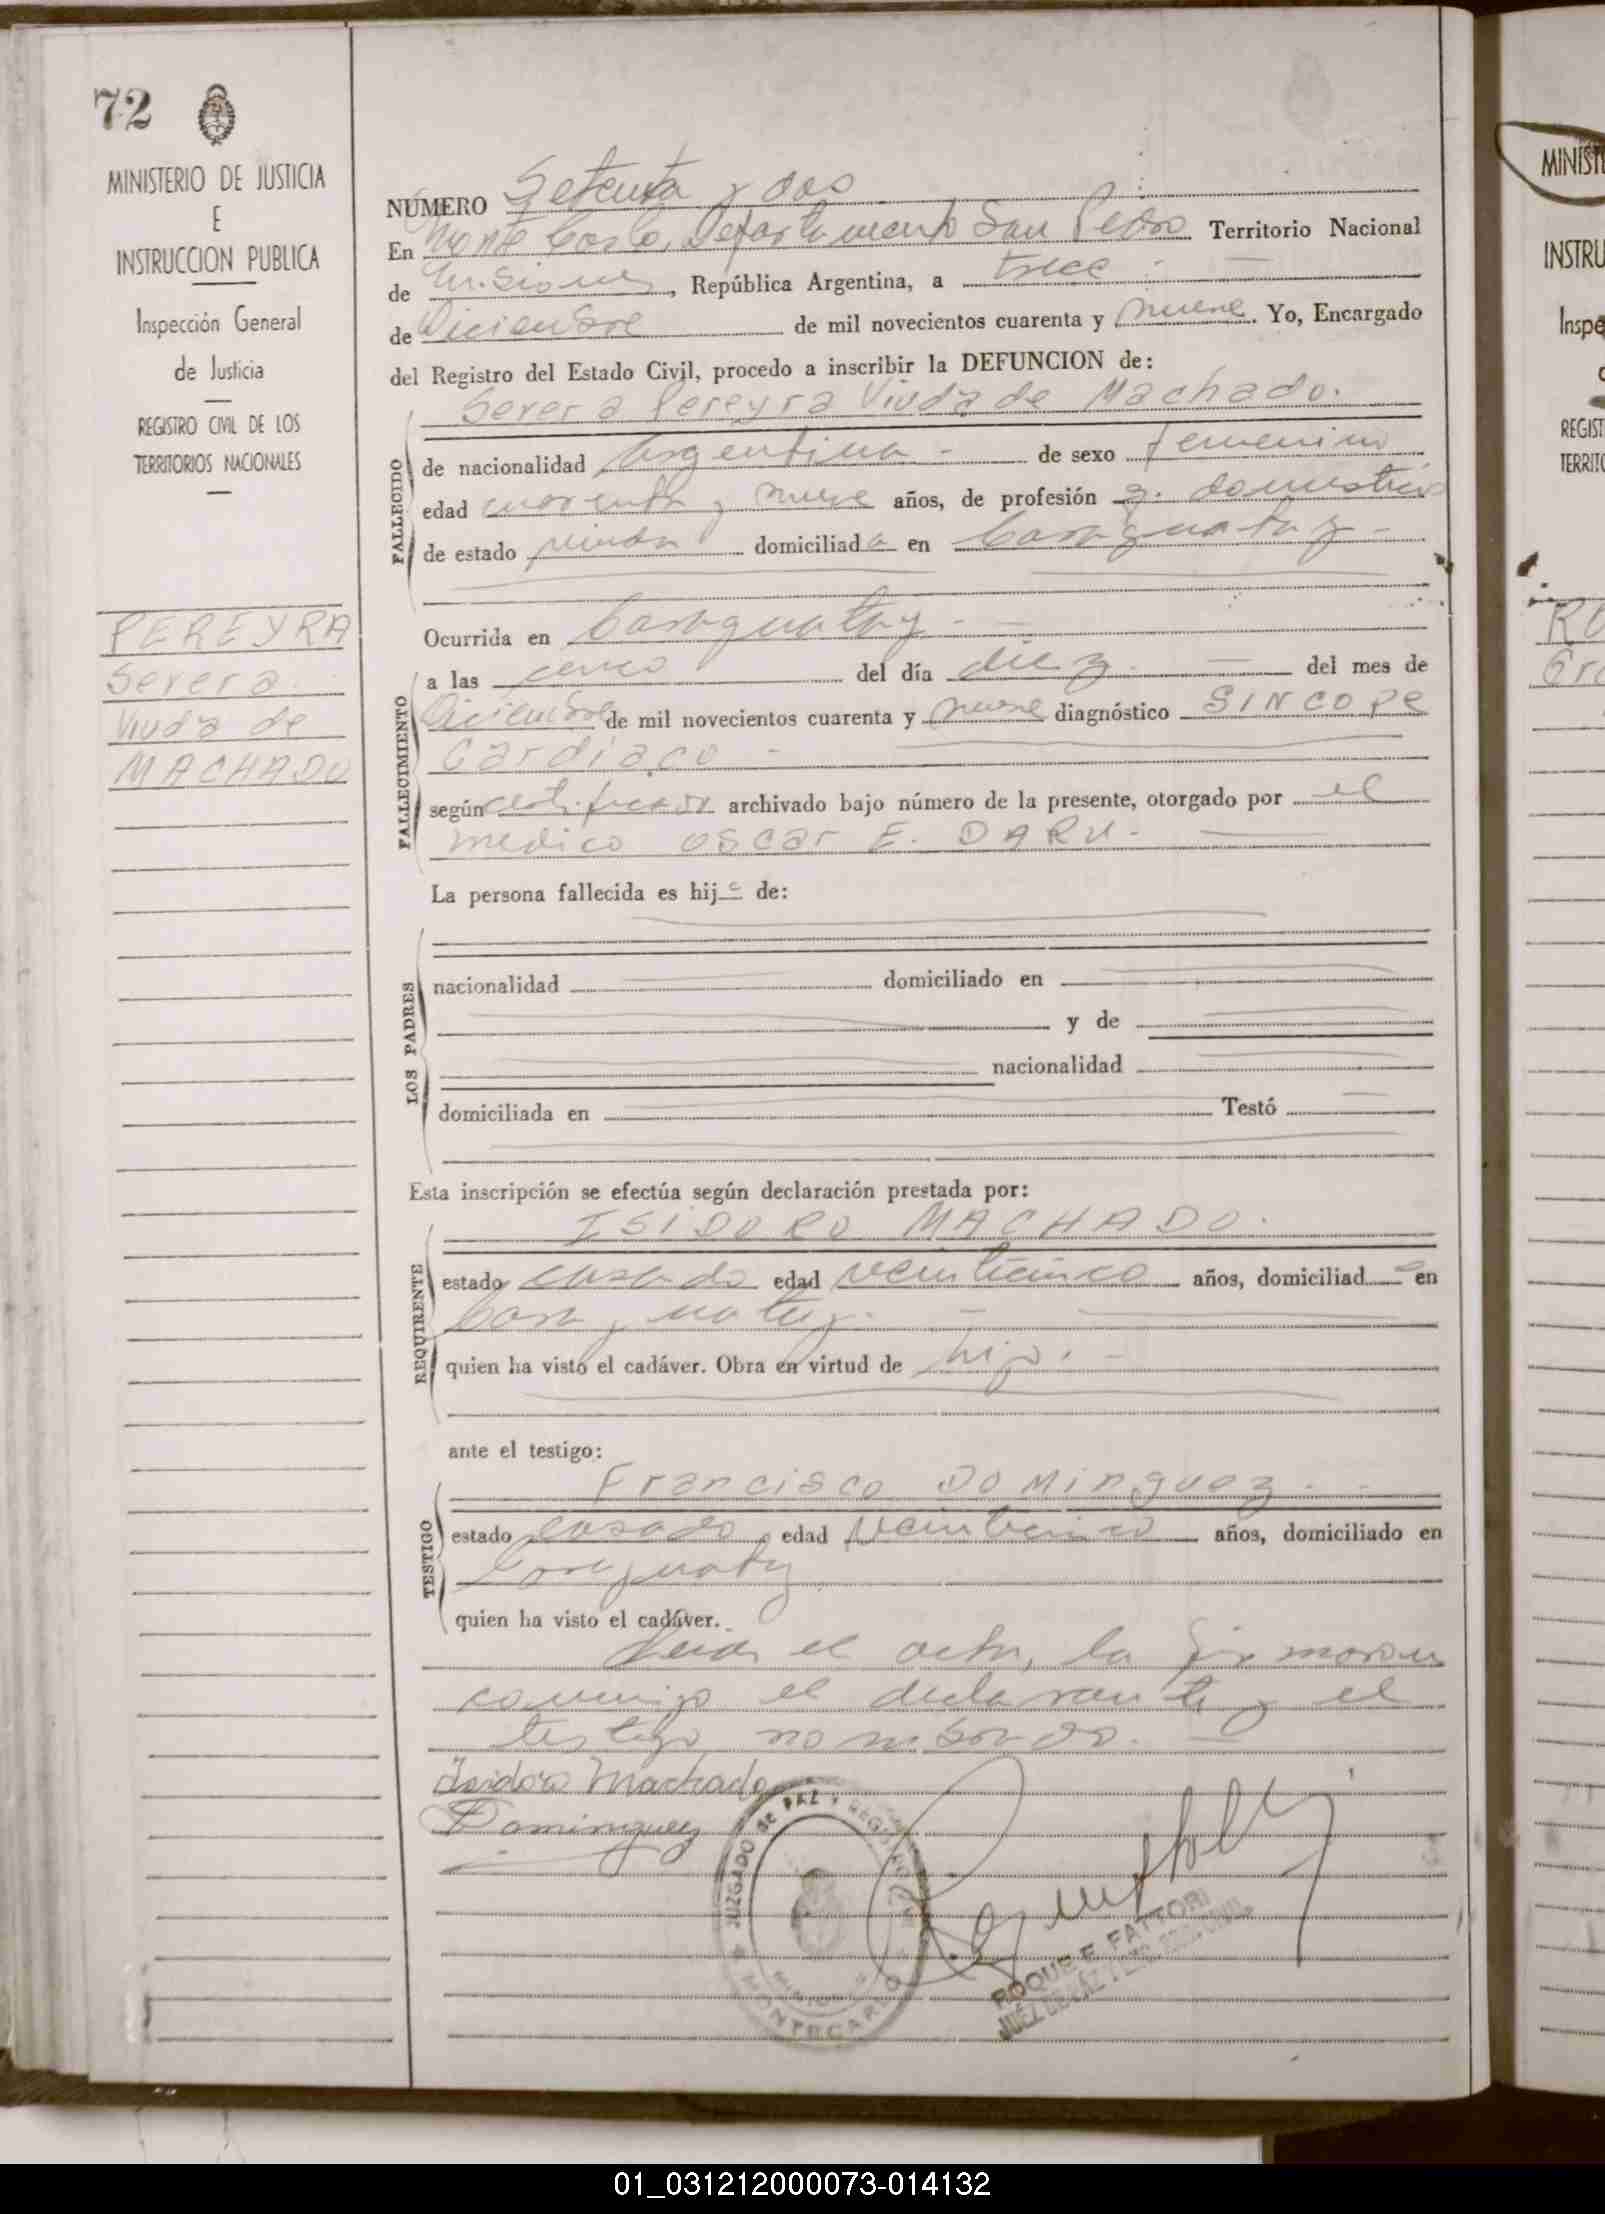 72
MINISTERIO DE JUSTICIA
E
INSTRUCCION PUBLICA
Inspección General
de Justicia
REGISTRO CIVIL DE LOS
TERRITORIOS NACIONALES
PEREYRA
Severa
Viuda de
MACHADO
NÚMERO Setenta y dos
En Monte Carlo, Departamento San Pedro Territorio Nacional
de Misiones, República Argentina, a trece
de Diciembre de mil novecientos cuarenta y nueve. Yo, Encargado
del Registro del Estado Civil, procedo a inscribir la DEFUNCION de:
Severa Pereyra Viuda de Machado.
FALLECIDO
de nacionalidad Argentina - de sexo femenino
edad cuarenta y nueve años, de profesión q. domestico
de estado viuda domiciliada en Caraguatay -
Ocurrida en Caraguatay -
FALLECIMIENTO
a las cinco del día diez. del mes de
Diciembre de mil novecientos cuarenta y nueve diagnóstico SINCOPE
Cardiaco -
según certificado archivado bajo número de la presente, otorgado por el
medico Oscar E. DARU -
La persona fallecida es hij de:
LOS PADRES
nacionalidad domiciliado en
y de
nacionalidad
domiciliada en Testó
Esta inscripción se efectúa según declaración prestada por:
ISIDORO MACHADO.
REQUIRENTE
estado casado edad veinticinco años, domiciliado en
Caraguatay. -
quien ha visto el cadáver. Obra en virtud de hijo. -
ante el testigo:
Francisco DOMinguez.
TESTIGO
estado casado, edad veinticinco años, domiciliado en
Caraguatay
quien ha visto el cadáver.
Leida el acta, la firmaron
conmigo el declarante y el
testigo nombrado.
Isidoro Machado
Dominguez
JUZGADO DE PAZ Y REGISTRO CIVIL
MISIONES
MONTECARLO
ROQUE E. FATTORI
JUEZ DE PAZ
MINISTE
INSTRU
Inspe
REGIST
TERRITO
01_031212000073-014132